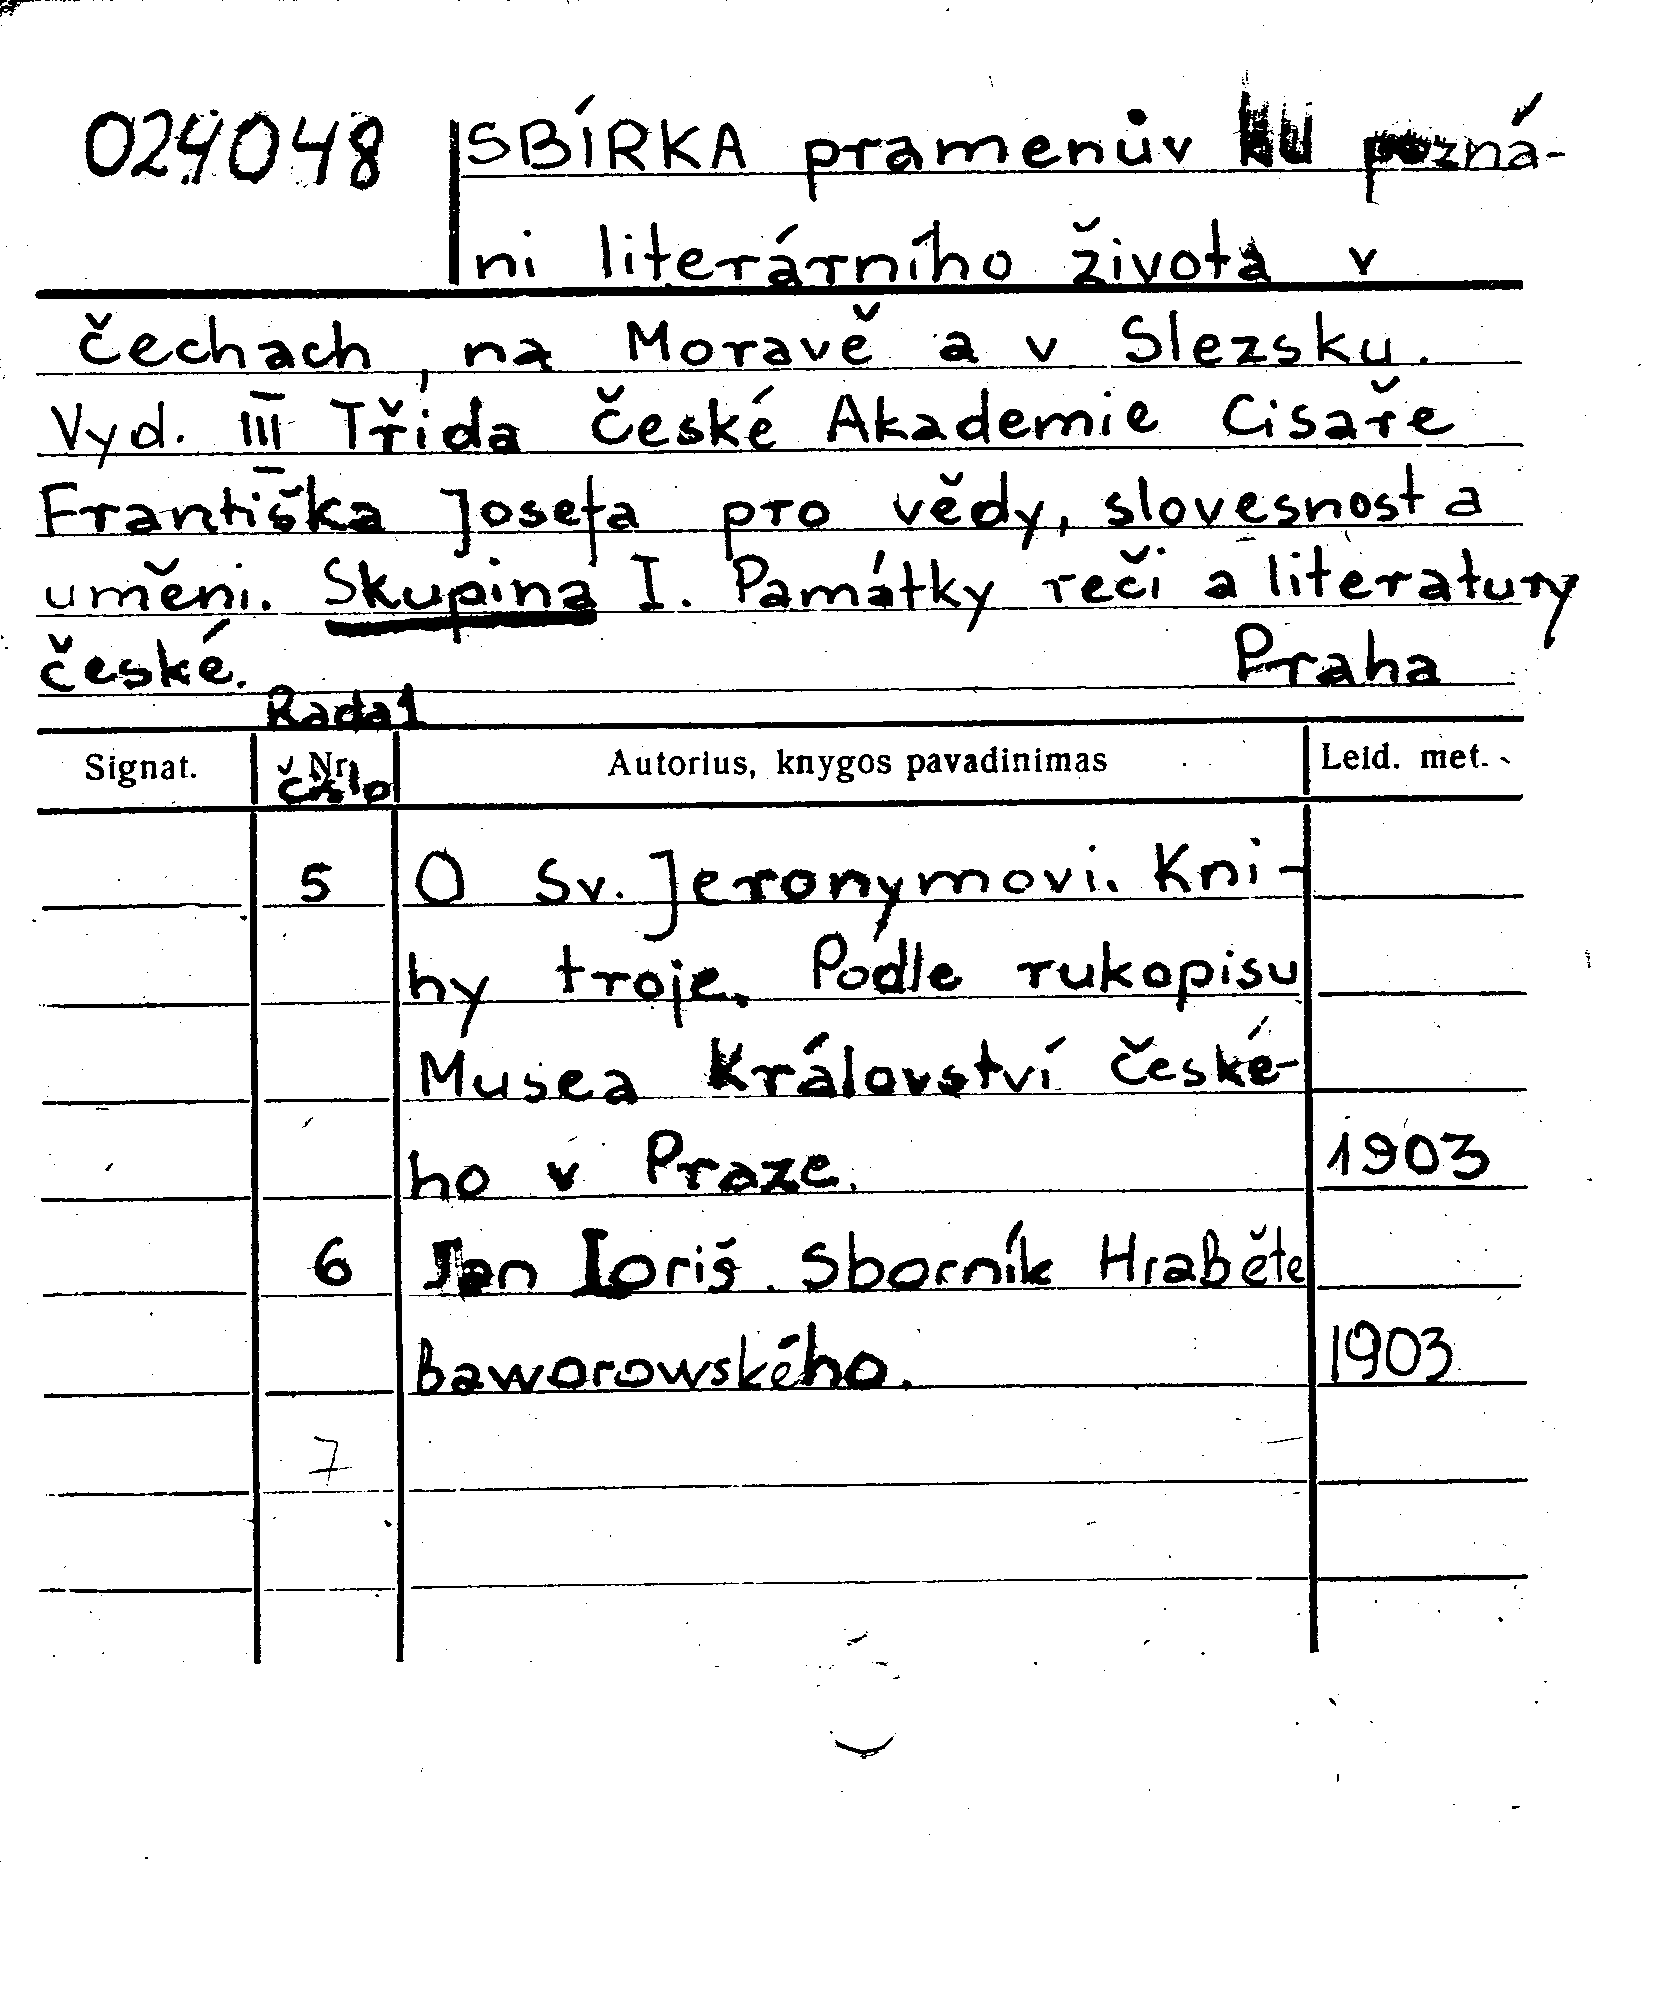 024048 SBÍRKA pramenův ku pozná-
ni literárního života v
čechach, na Moravě a v Slezsku.
Vyd. III Třida české Akademie Cisaře
Františka Josefa pro vědy, slovesnost a
uměni. Skupina I. Památky reči a literatury
české. Praha
Rada 1
Signat. Nr. Autorius, knygos pavadinimas Leid. met.
čislo
5 O Sv. Jeronymovi. Kni-
hy troje. Podle rukopisu
Musea Království české-
ho v Praze. 1903
6 Jan Loriš. Sborník Hraběte
Baworowského. 1903
7